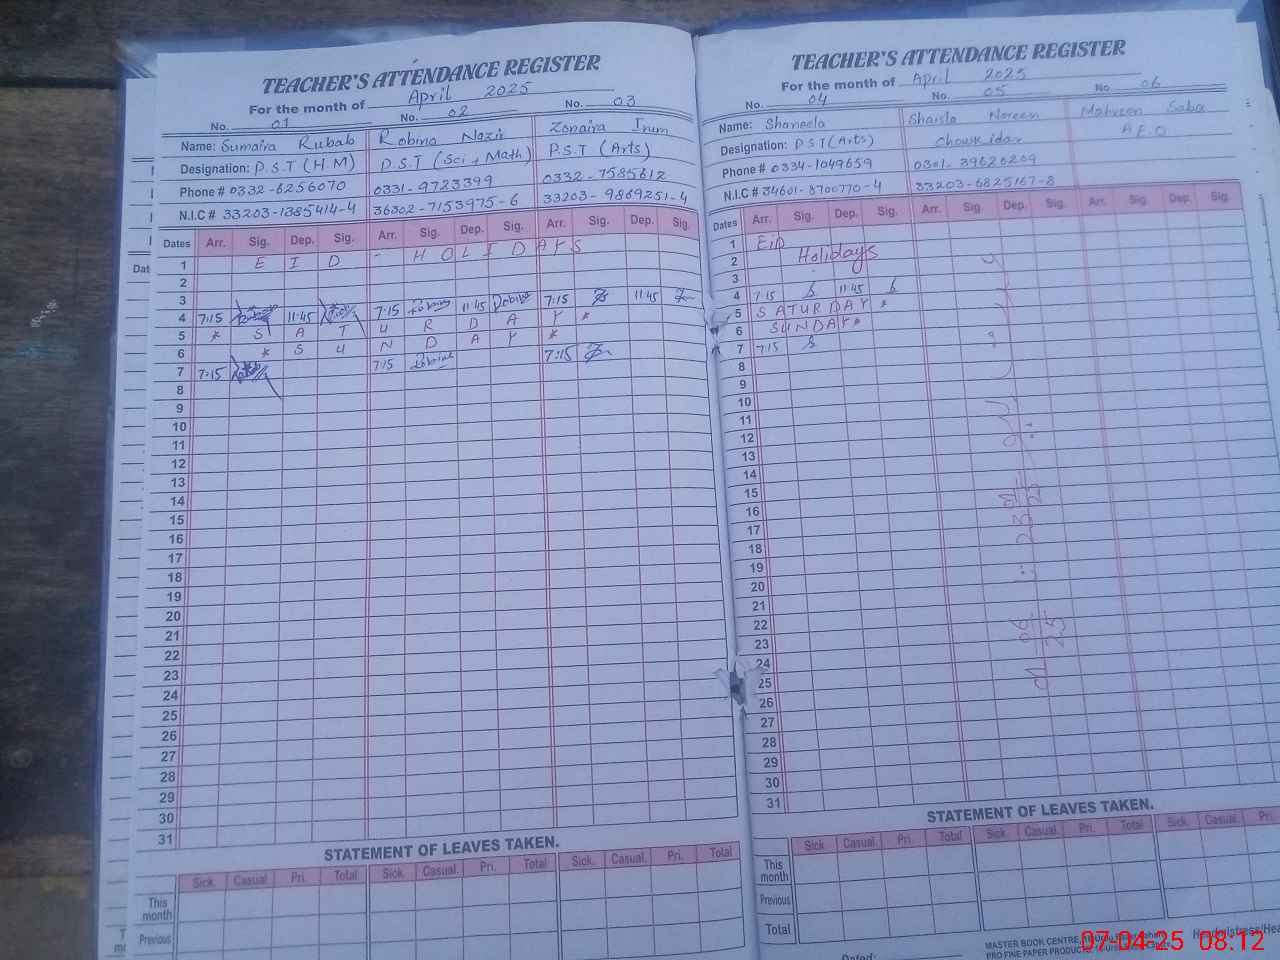 TEACHER'S ATTENDANCE REGISTER
For the month of April 2025
No. 01 No. 02 No. 03
Name: Sumaira Rubab Robina Nazir Zonaira Irum
Designation: P.S.T (H.M) P.S.T (Sci + Math) P.S.T (Arts)
Phone # 0332-6256070 0331-9723399 0332-7585612
N.I.C # 33203-1385414-4 36302-7153975-6 33203-9869251-4
Dates Arr. Sig. Dep. Sig. Arr. Sig. Dep. Sig. Arr. Sig. Dep. Sig.
1 EID - HOLIDAYS
2
3
4 7:15 11:45 7:15 Robina 11:45 Robina 7:15 11:45
5 * SATURDAY *
6 * SUNDAY *
7 7:15 7:15 Robina 7:15
8
9
10
11
12
13
14
15
16
17
18
19
20
21
22
23
24
25
26
27
28
29
30
31
STATEMENT OF LEAVES TAKEN.
Sick. Casual Pri. Total Sick. Casual. Pri. Total Sick. Casual. Pri. Total
This month
Previous
TEACHER'S ATTENDANCE REGISTER
For the month of April 2025
No. 04 No. 05 No. 06
Name: Shaneela Shaista Noreen Mahreen Saba
Designation: P S T (Arts) Chowkidar A.E.O
Phone # 0334-1049659 0301-39620209
N.I.C # 34601-8700770-4 33203-6825167-8
Dates Arr. Sig. Dep. Sig. Arr. Sig. Dep. Sig. Arr. Sig. Dep. Sig.
1 Eid
2 Holidays
3
4 7:15 11:45
5 SATURDAY *
6 SUNDAY *
7 7:15
8
9
10
11
12
13
14
15
16
17
18
19
20
21
22
23
24
25
26
27
28
29
30
31
STATEMENT OF LEAVES TAKEN.
Sick. Casual. Pri. Total Sick. Casual. Pri. Total Sick. Casual. Pri.
This month
Previous
Total
MASTER BOOK CENTRE,
PRO FINE PAPER PRODUCTS,
Dated:
Headmistress/
07-04-25 08:12